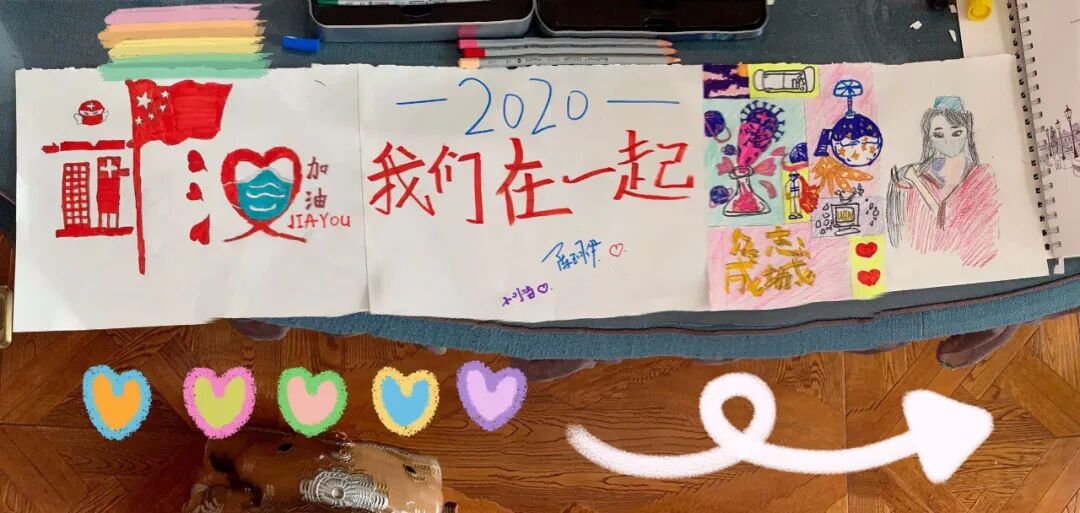 加
油
JIAYOU
—2020—
我们在一起
众志
成城